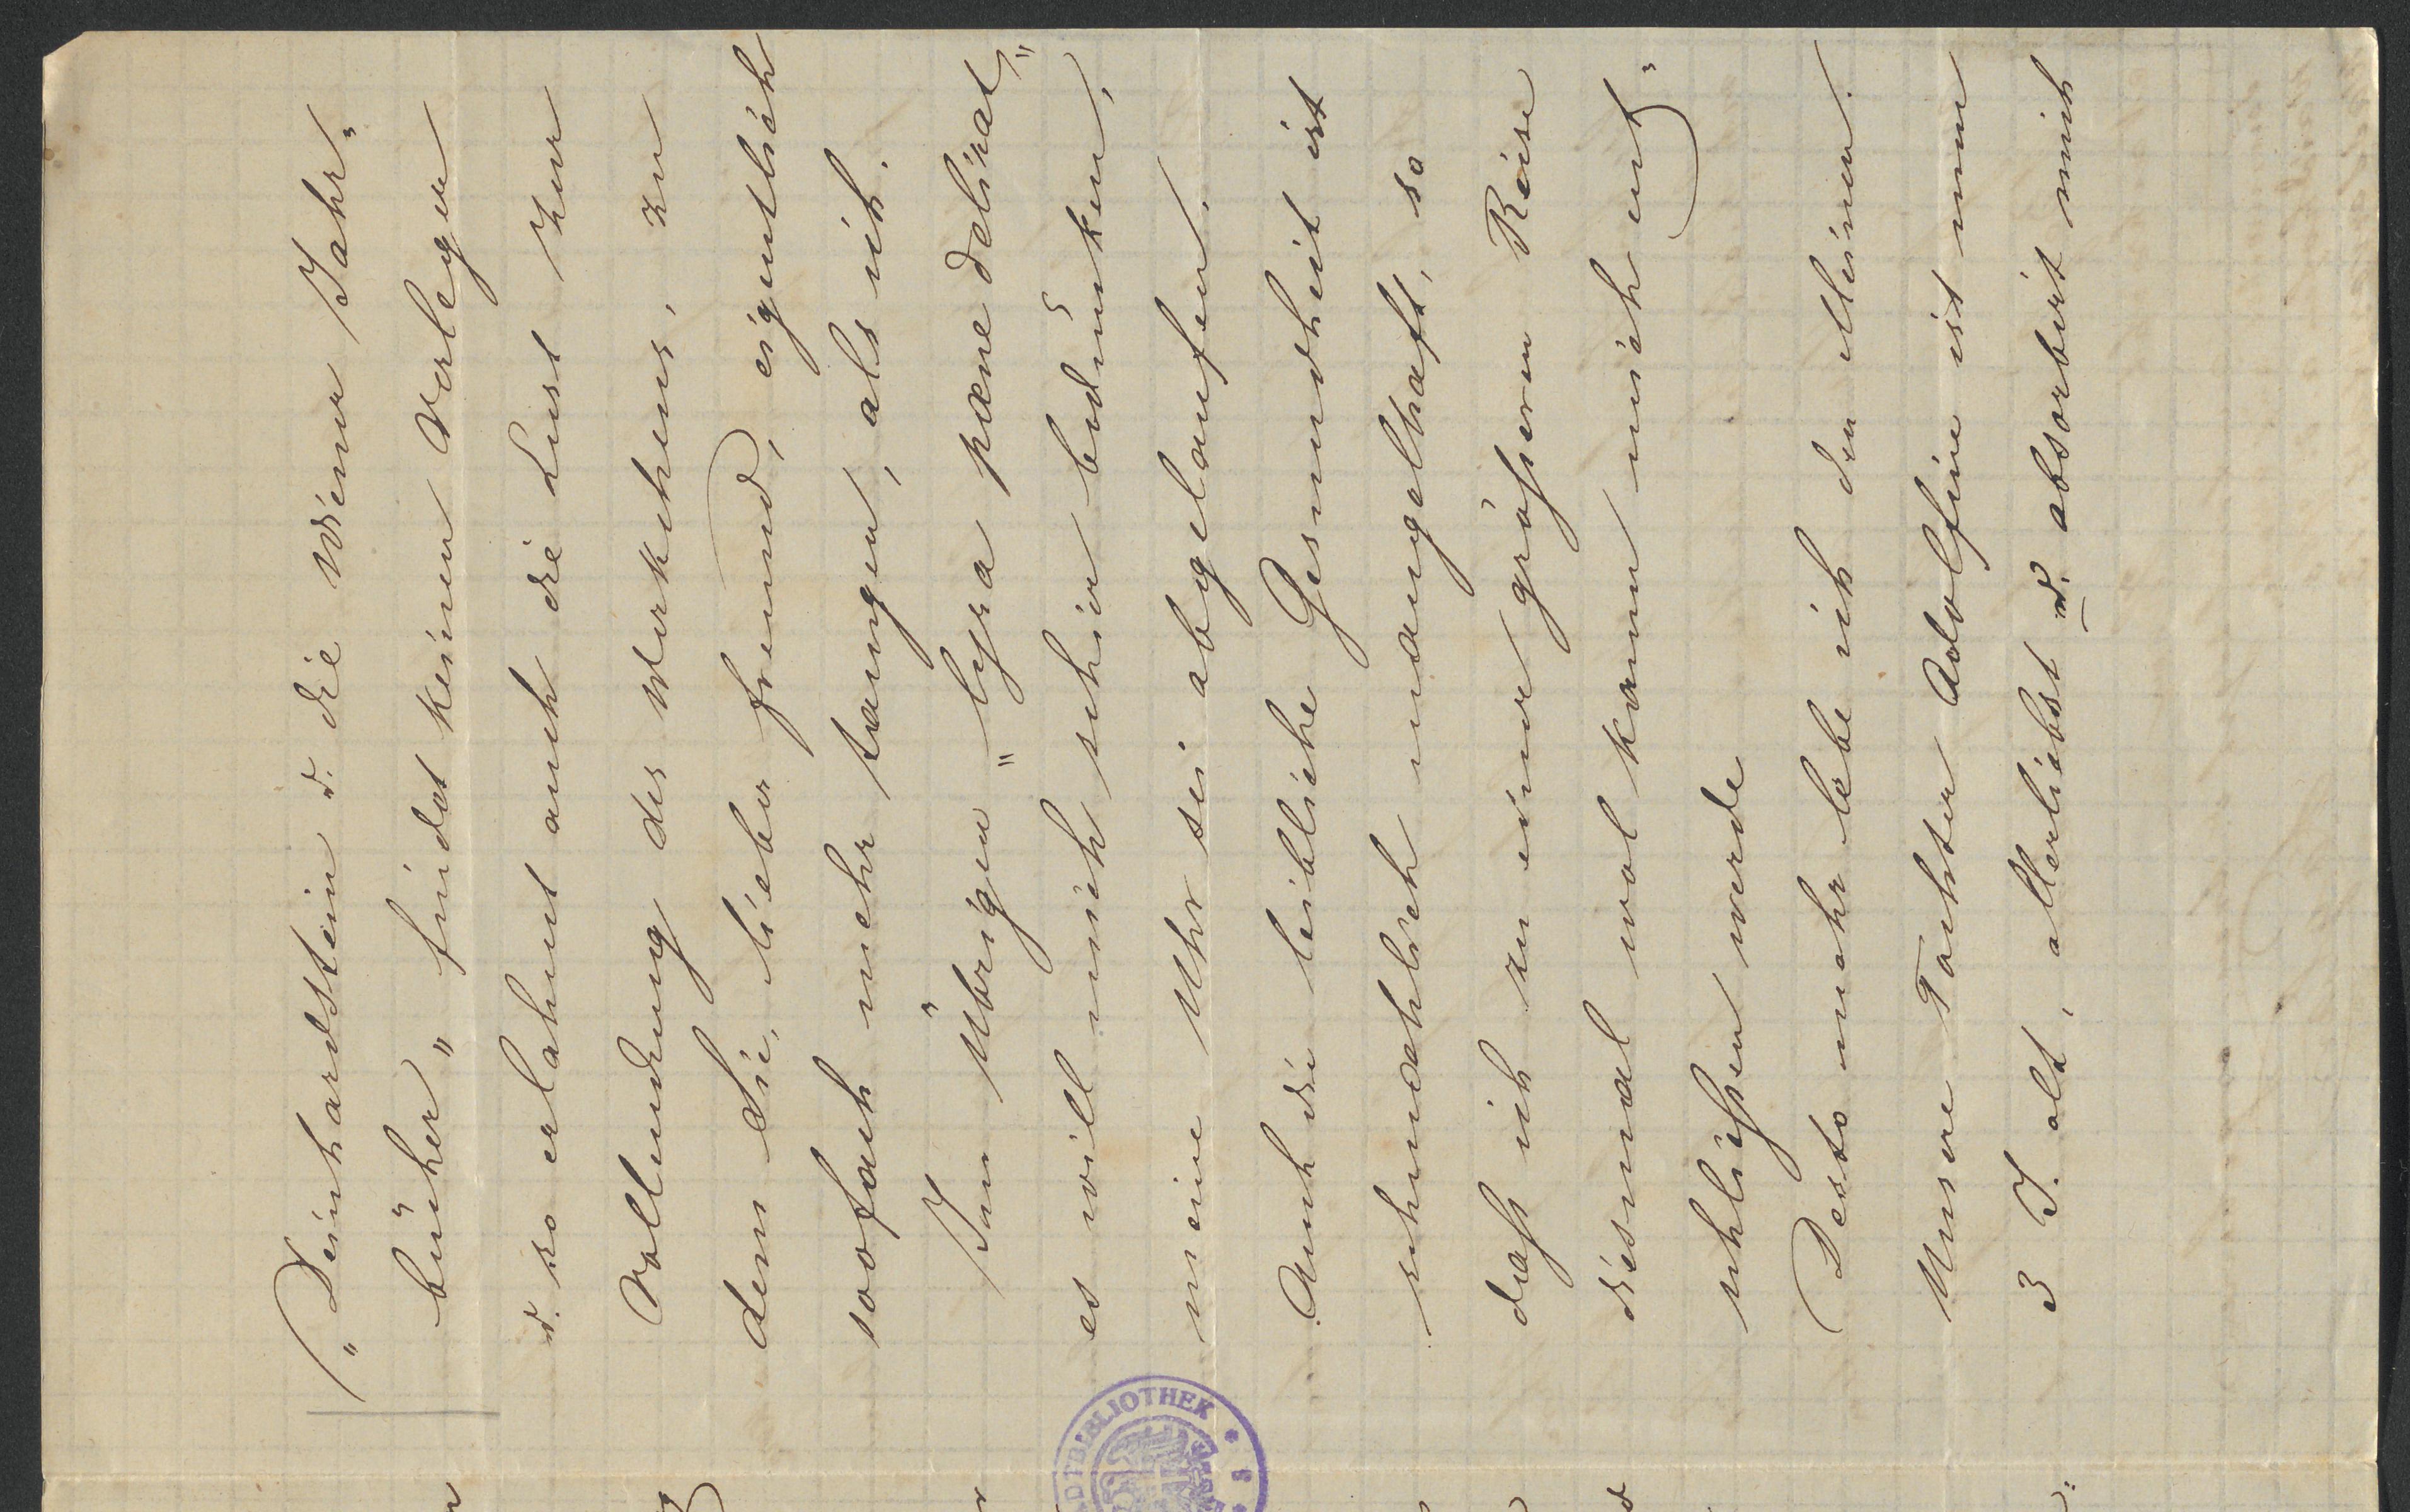 „Deinhardstein u. die Wiener Jahr-
bücher„ findet keinen Verleger
u. so erlahmt auch die Lust zur
Vollendung des Werkchens, zu
dem Sie, lieber Freund, eigentlich
1oofach mehr taugen, als ich.
Im Übrigen „lyra paene delirat„
es will mich schier bedünken,
meine Uhr sei abgelaufen.
Auch die leibliche Gesundheit ist
schmählich mangelhaft, so
daß ich zu einer größeren Reise
diesmal wol kaum mich ent-
schließen werde
Desto mehr lebe ich den Meinen.
Unsere Tochter Adolfine ist nun
3 J. alt, allerliebst u. absorbirt mich
STADTBIBLIOTHEK